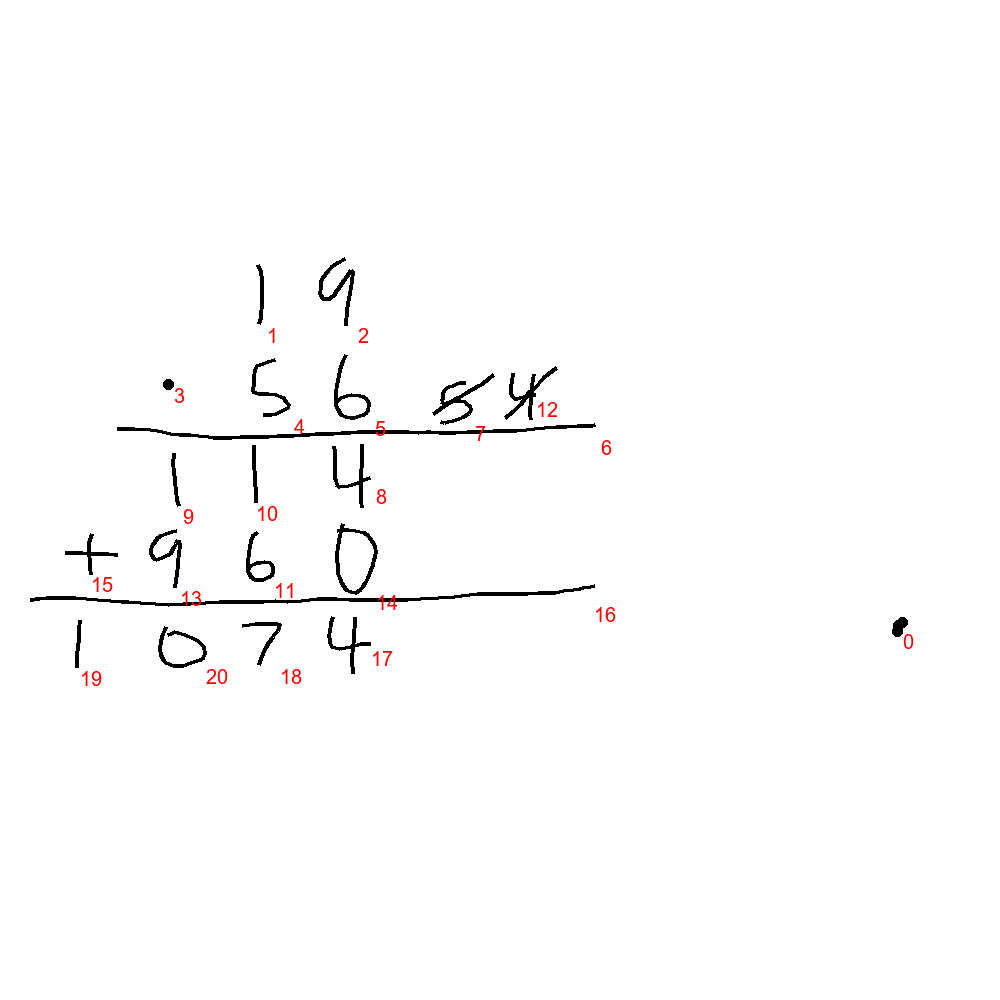 1 9
1 2
· 5 6 5 4
3 4 5 7 12 6
1 1 4
9 10 8
+ 9 6 0
15 13 11 14 16
1 0 7 4
19 20 18 17 0